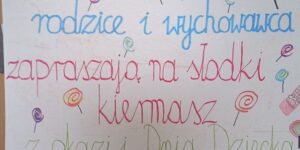 rodzice i wychowawca
zapraszają na słodki
kiermasz
z okazji Dnia Dziecka